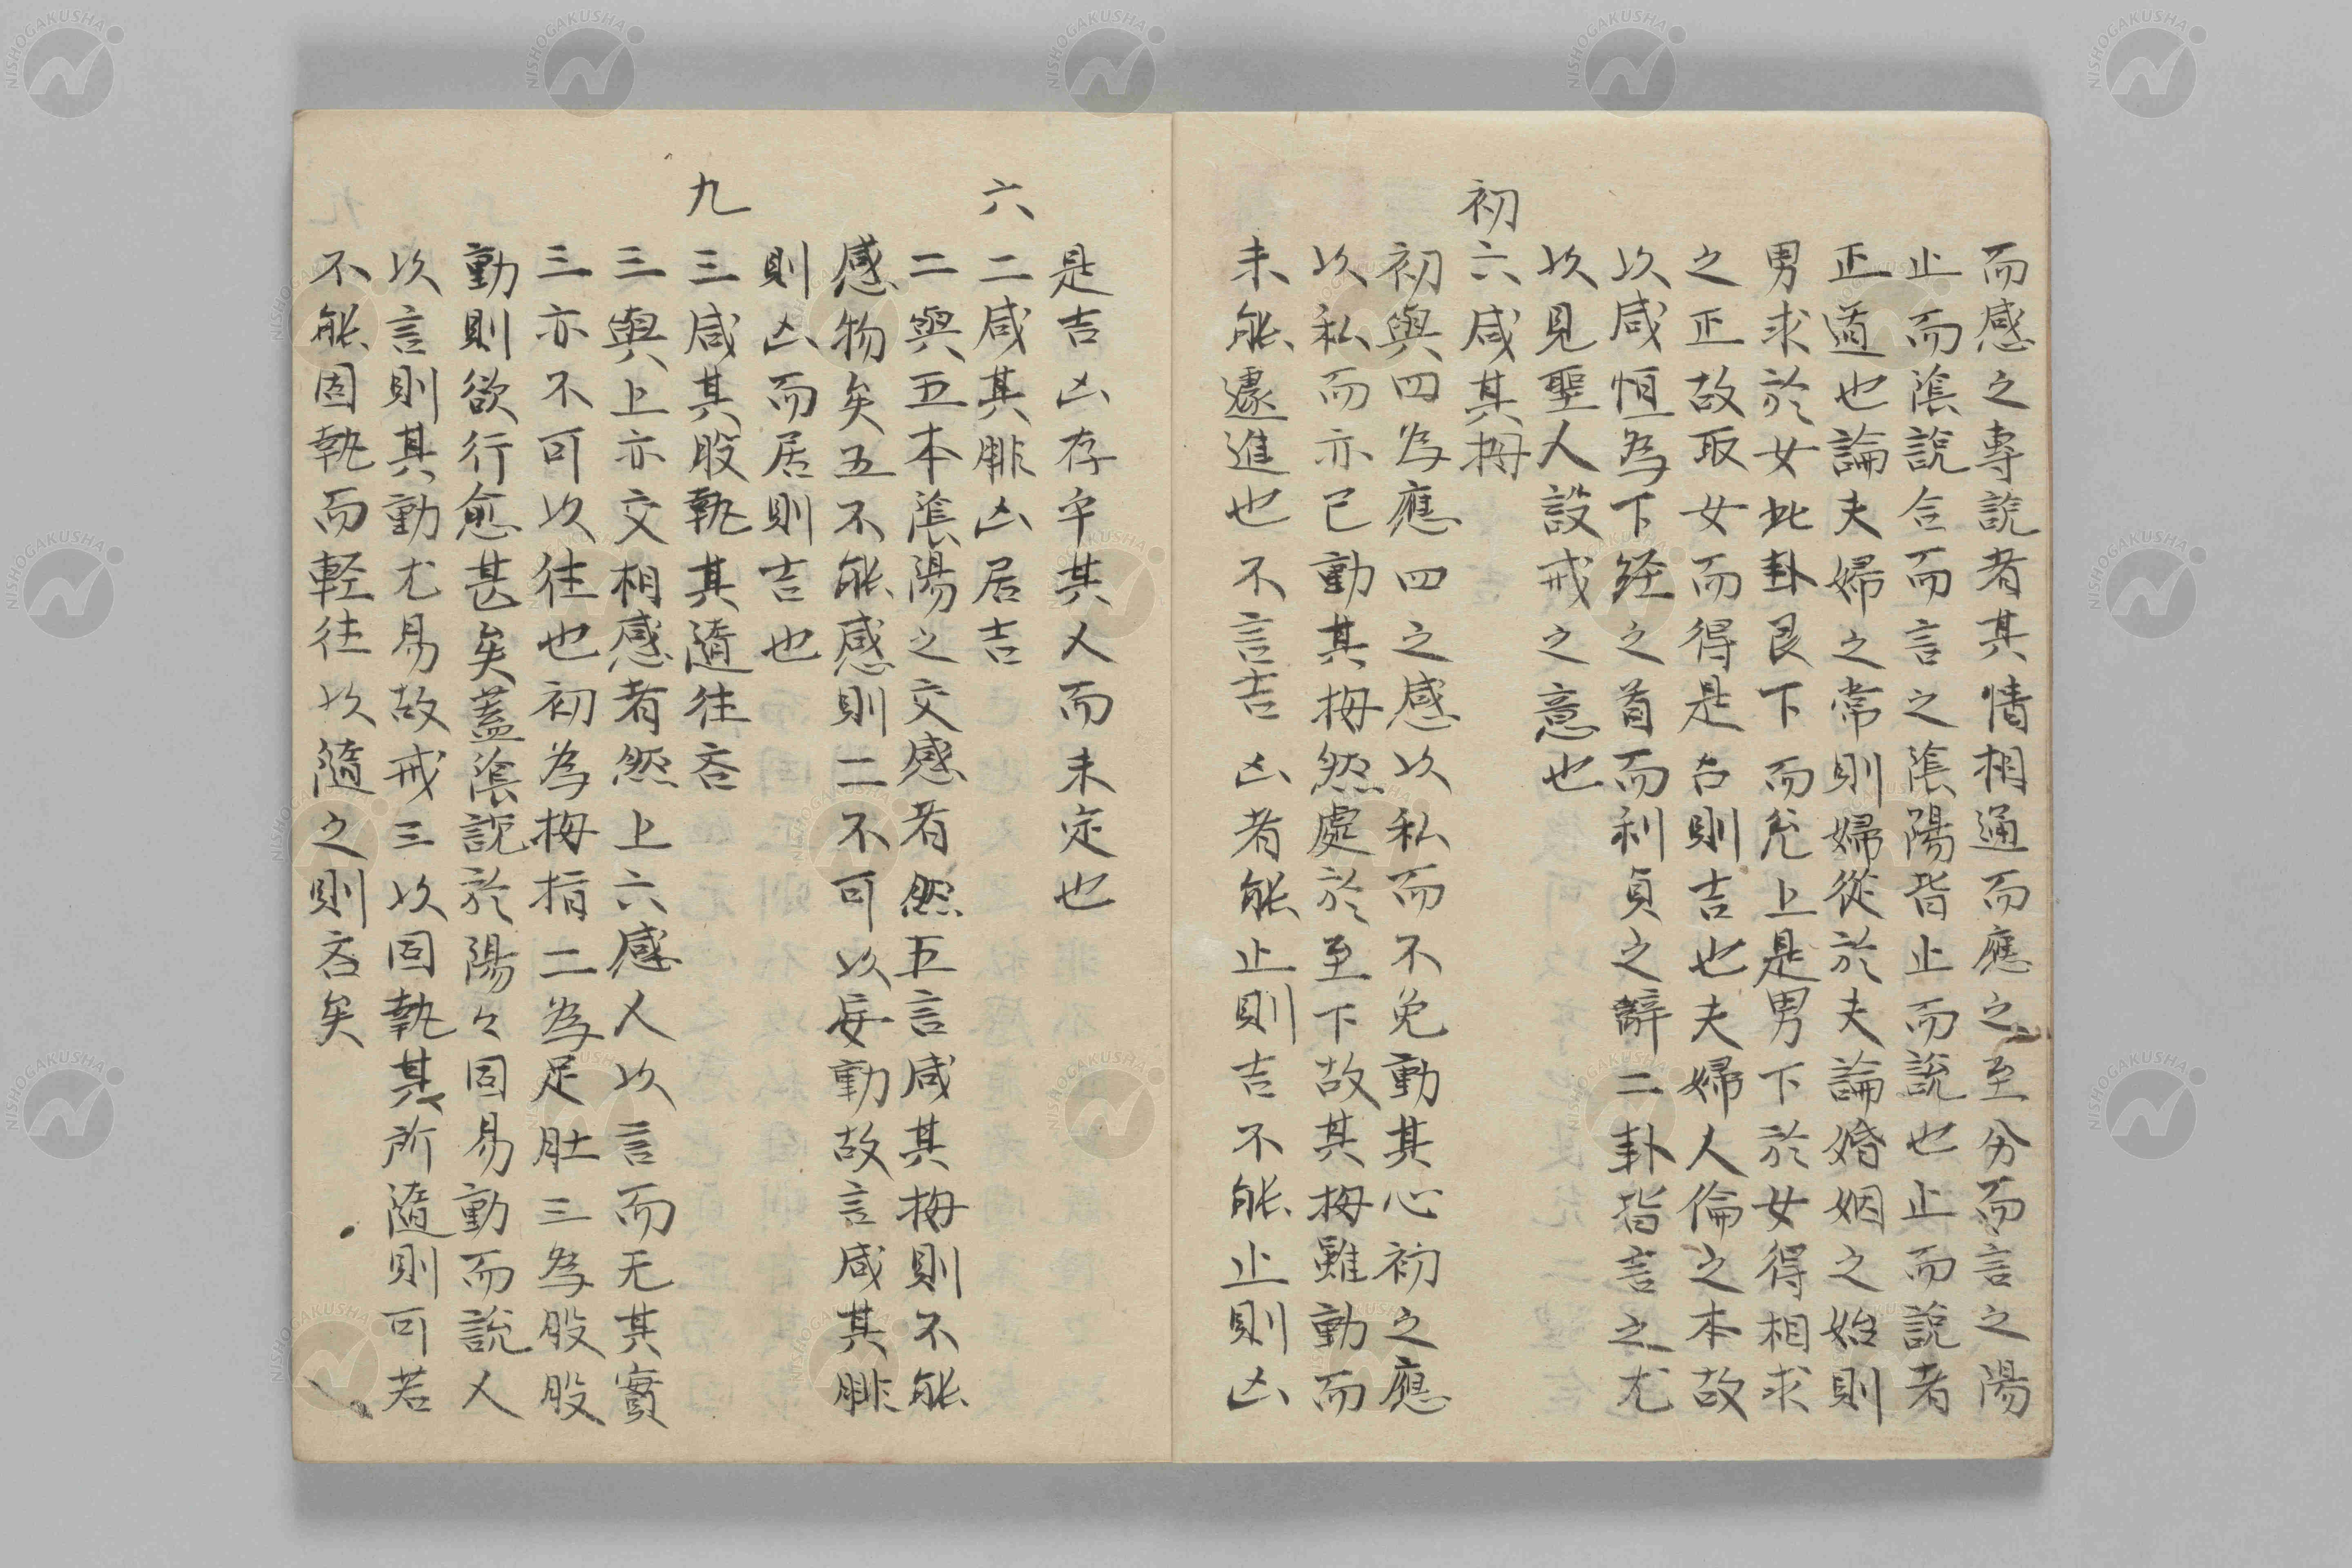 而感之專説者其情相通而應之至分而言之陽
止而陰説合而言之陰陽皆止而説也止而説者
正道也論夫婦之常則婦從於夫論婚姻之始則
男求於女此卦艮下而兌上是男下於女得相求
之正故取女而得是占則吉也夫婦人倫之本故
以咸恒為下経之首而利貞之辭二卦皆言之尤
以見聖人設戒之意也
初六咸其拇
初與四為應四之感以私而不免動其心初之應
以私而亦已動其拇然處於至下故其拇雖動而
未能遽進也不言吉凶者能止則吉不能止則凶
是吉凶存乎其人而未定也
六二咸其腓凶居吉
二與五本陰陽之交感者然五言咸其拇則不能
感物矣五不能感則二不可以妄動故言咸其腓
則凶而居則吉也
九三咸其股執其隨往吝
三與上亦交相感者然上六感人以言而无其實
三亦不可以往也初為拇指二為足肚三為股股
動則欲行愈甚矣蓋陰説於陽々固易動而説人
以言則其動尤易故戒三以固執其所隨則可若
不能固執而軽往以隨之則吝矣
NISHOGAKUSHA